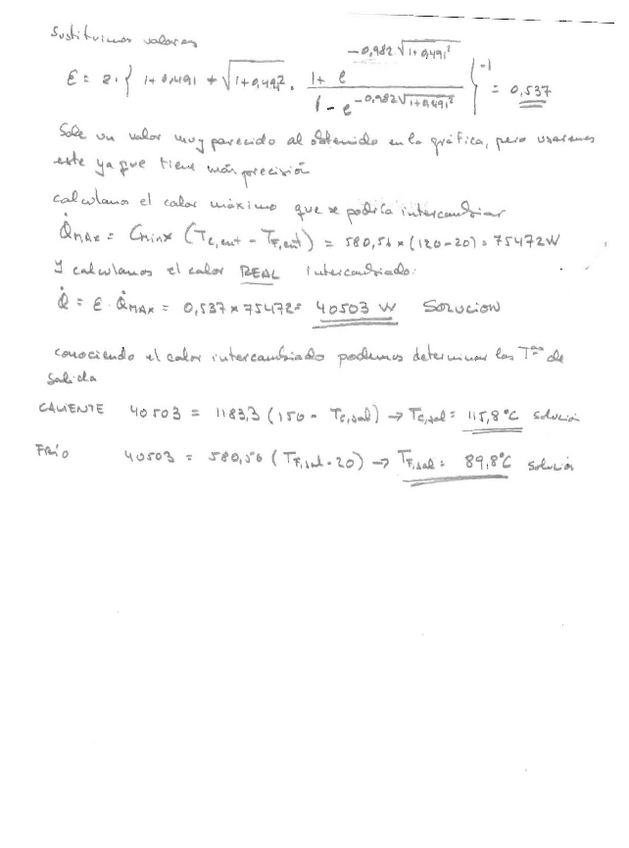 Sustituimos valores
ε = 2 · { 1 + 0,491 + √(1+0,491²) · (1 + e^(-0,982√(1+0,491²))) / (1 - e^(-0,982√(1+0,491²))) }^-1 = 0,537
Sale un valor muy parecido al obtenido en la gráfica, pero usaremos
este ya que tiene más precisión
calculamos el calor máximo que se podría intercambiar
Q̇MAX = Cmin x (Tc,ent - TF,ent) = 580,56 x (120-20) = 75472 W
Y calculamos el calor REAL intercambiado:
Q̇ = ε · Q̇MAX = 0,537 x 75472 = 40503 W SOLUCION
conociendo el calor intercambiado podemos determinar las Tªs de
salida
CALIENTE 40503 = 1183,3 (150 - Tc,sal) → Tc,sal = 115,8°C solución
FRÍO 40503 = 580,56 (TF,sal - 20) → TF,sal = 89,8°C solución